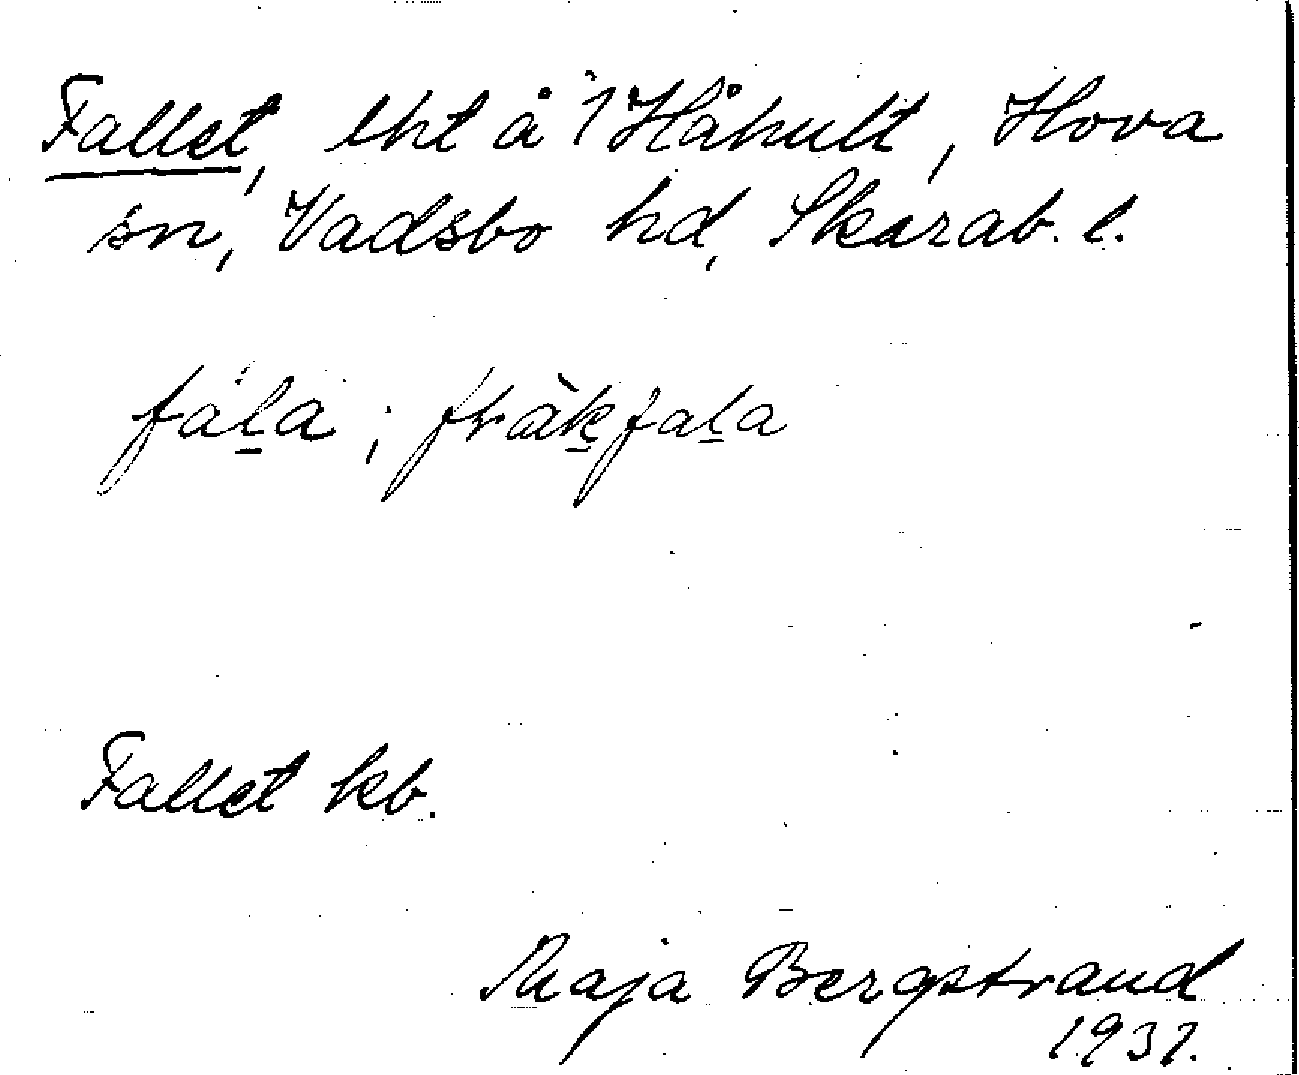 Fallet, lht å 1 Håhult, Hova
sn, Vadsbo hd, Skarab. l.
fäla ; fräkfala
Fallet kb.
Maja Bergstrand
1937.